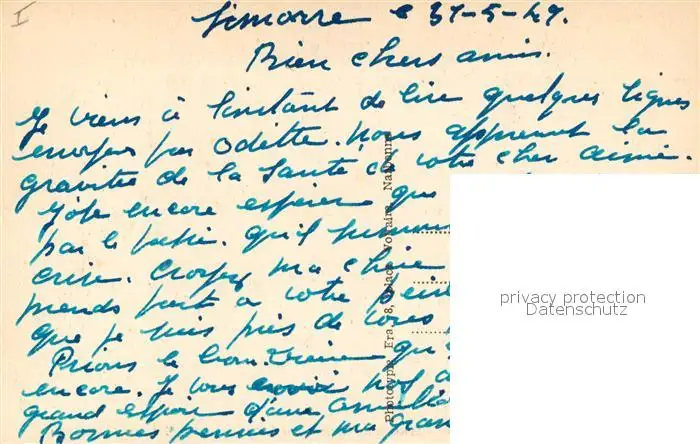 I
Simorre le 31-5-49.
Bien chers amis.
Je viens à l'instant de lire quelques lignes
envoyées par Odette. nous apprenant la
gravitée de la Santé de votre cher aimé.
J'ose encore espérer que
par le passé. qu'il surmon
crise. Croyez ma chère
prends part à votre pein
que je suis près de vous
Prions le bon Dieu qu
encore. Je vous envoie nos
grand espoir d'une amélio
Bonnes pensées et ma gran
Phototypie Era, 18, place Voltaire, Narbonne
privacy protection
Datenschutz